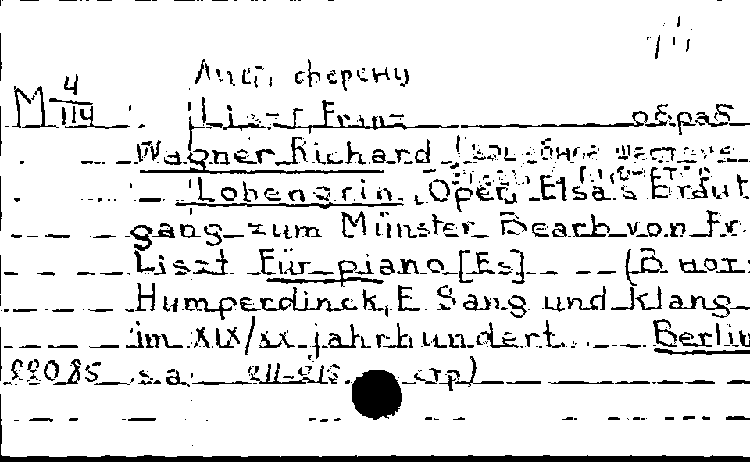 Лист, Ференц
М 4/114 Liszt, Franz обраб
Wagner Richard
Lohengrin, Oper, Elsa's Braut
gang zum Münster Bearb von Fr.
Liszt Für piano [Es] (В нот:
Humperdinck, E Sang und klang
im XIX/XX jahrhundert. Berlin
22085 s.a. стр)